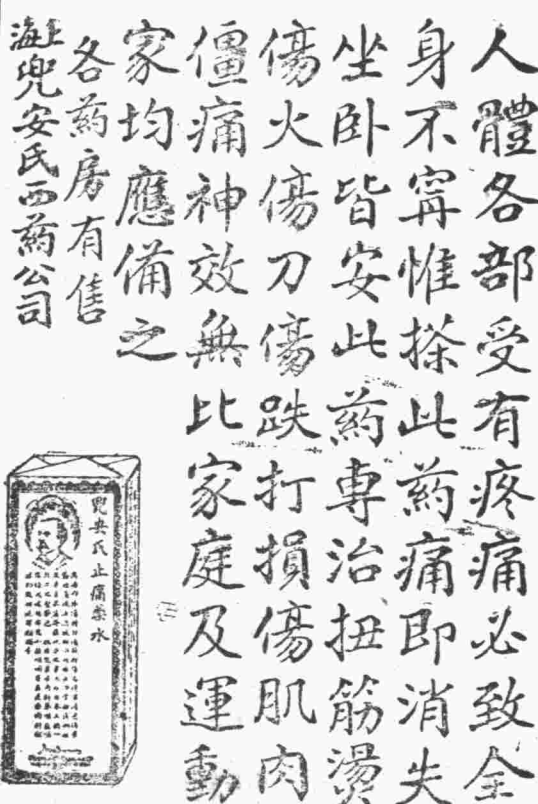 人體各部受有疼痛必致全
身不寗惟搽此藥痛即消失
坐卧皆安此藥専治扭筋燙
傷火傷刀傷跌打損傷肌肉
僵痛神效無比家庭及運動
家均應備之
各藥房有售
上海兜安氏西藥公司
兜安氏止痛藥水